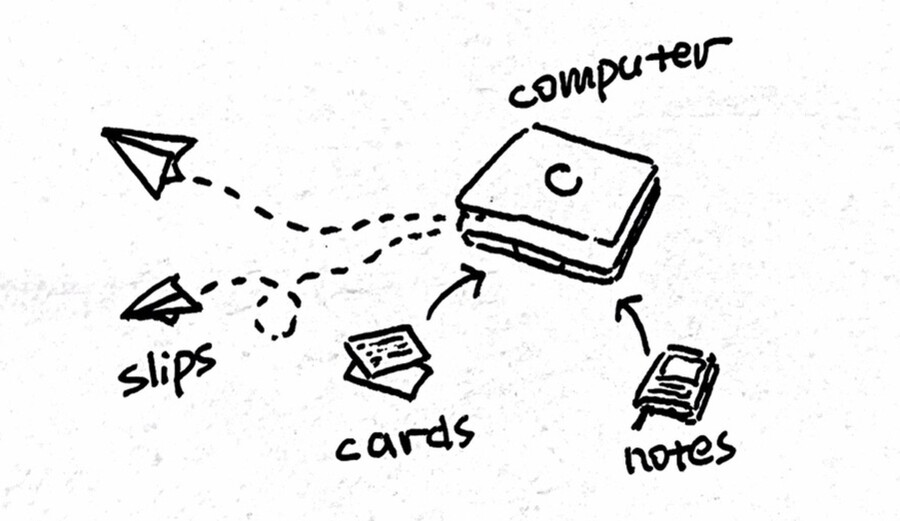 computer
slips
cards
notes